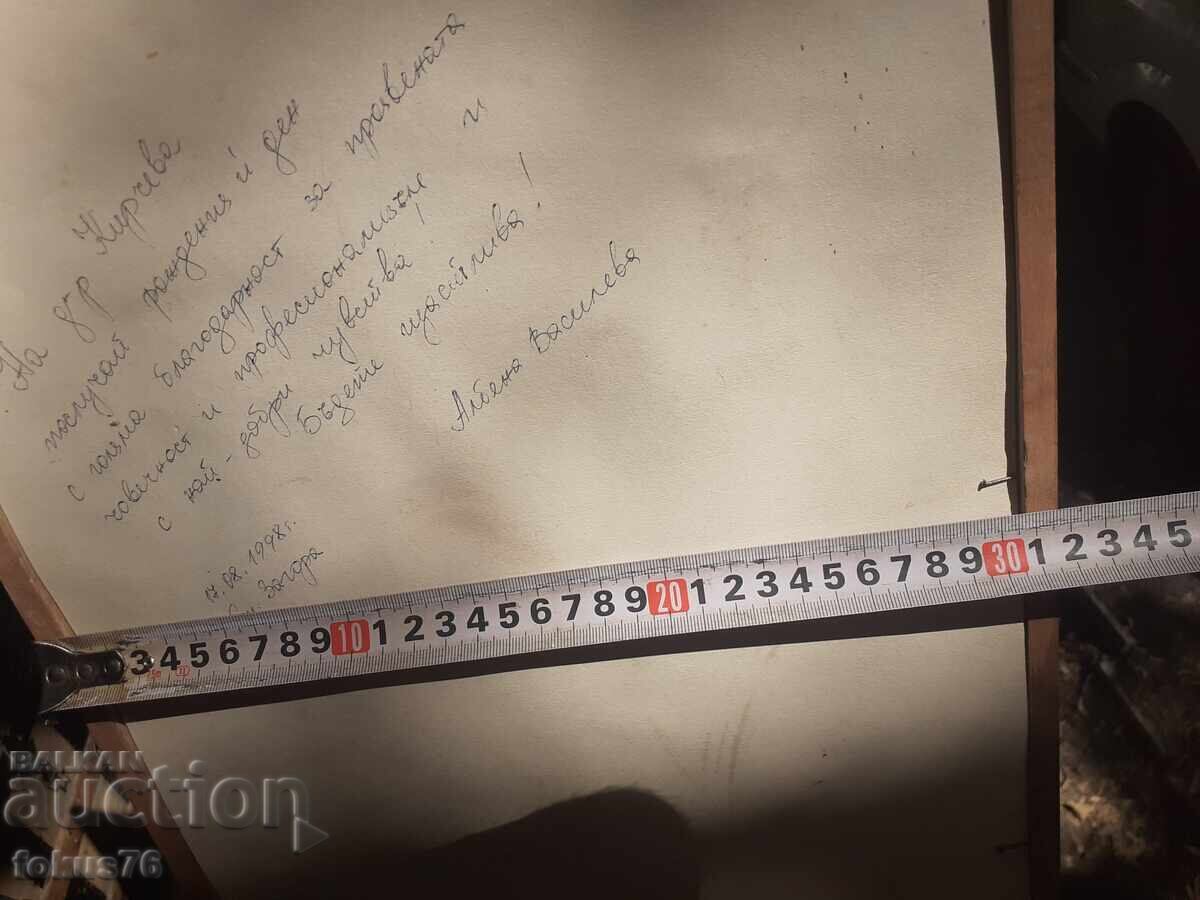 На д-р Кирчева
по случай рождения ѝ ден
с голяма благодарност за проявената
човечност и професионализъм и
с най-добри чувства!
Бъдете щастлива!
Албена Василева
17.08.1998г.
Ст. Загора
3 4 5 6 7 8 9 10 1 2 3 4 5 6 7 8 9 20 1 2 3 4 5 6 7 8 9 30 1 2 3 4 5
BALKAN
auction
fokus76